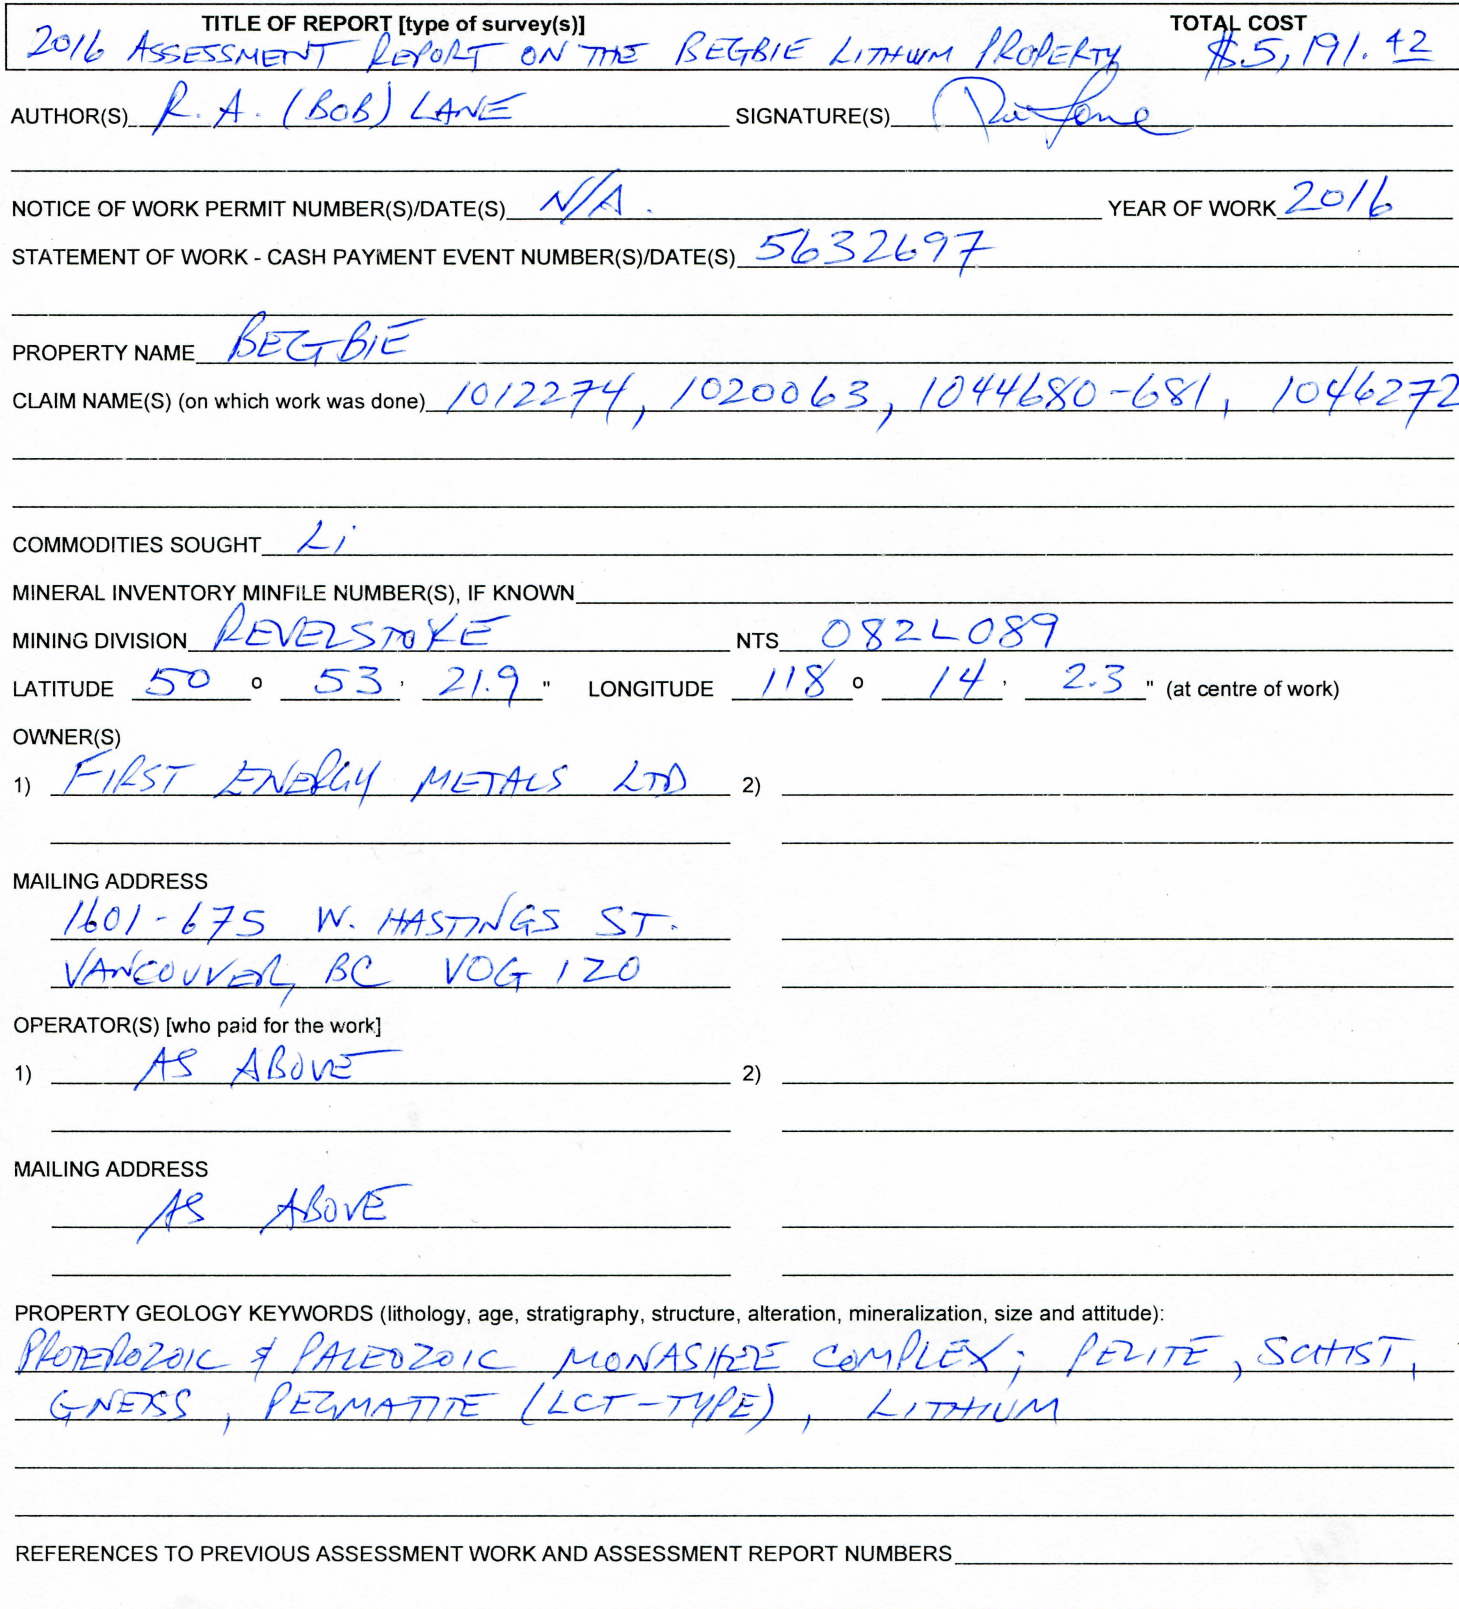 TITLE OF REPORT [type of survey(s)] TOTAL COST
2016 ASSESSMENT REPORT ON THE BEGBIE LITHIUM PROPERTY $5,191.42
AUTHOR(S) R. A. (BOB) LANE SIGNATURE(S)
NOTICE OF WORK PERMIT NUMBER(S)/DATE(S) N/A. YEAR OF WORK 2016
STATEMENT OF WORK - CASH PAYMENT EVENT NUMBER(S)/DATE(S) 5632697
PROPERTY NAME BEGBIE
CLAIM NAME(S) (on which work was done) 1012274, 1020063, 1044680-681, 1046272
COMMODITIES SOUGHT Li
MINERAL INVENTORY MINFILE NUMBER(S), IF KNOWN
MINING DIVISION REVELSTOKE NTS 082L089
LATITUDE 50 ° 53 ' 21.9 " LONGITUDE 118 ° 14 ' 2.3 " (at centre of work)
OWNER(S)
1) FIRST ENERGY METALS LTD 2)
MAILING ADDRESS
1601-675 W. HASTINGS ST.
VANCOUVER, BC V0G 1Z0
OPERATOR(S) [who paid for the work]
1) AS ABOVE 2)
MAILING ADDRESS
AS ABOVE
PROPERTY GEOLOGY KEYWORDS (lithology, age, stratigraphy, structure, alteration, mineralization, size and attitude):
PROTEROZOIC & PALEOZOIC MONASHEE COMPLEX; PELITE, SCHIST,
GNEISS, PEGMATITE (LCT-TYPE), LITHIUM
REFERENCES TO PREVIOUS ASSESSMENT WORK AND ASSESSMENT REPORT NUMBERS